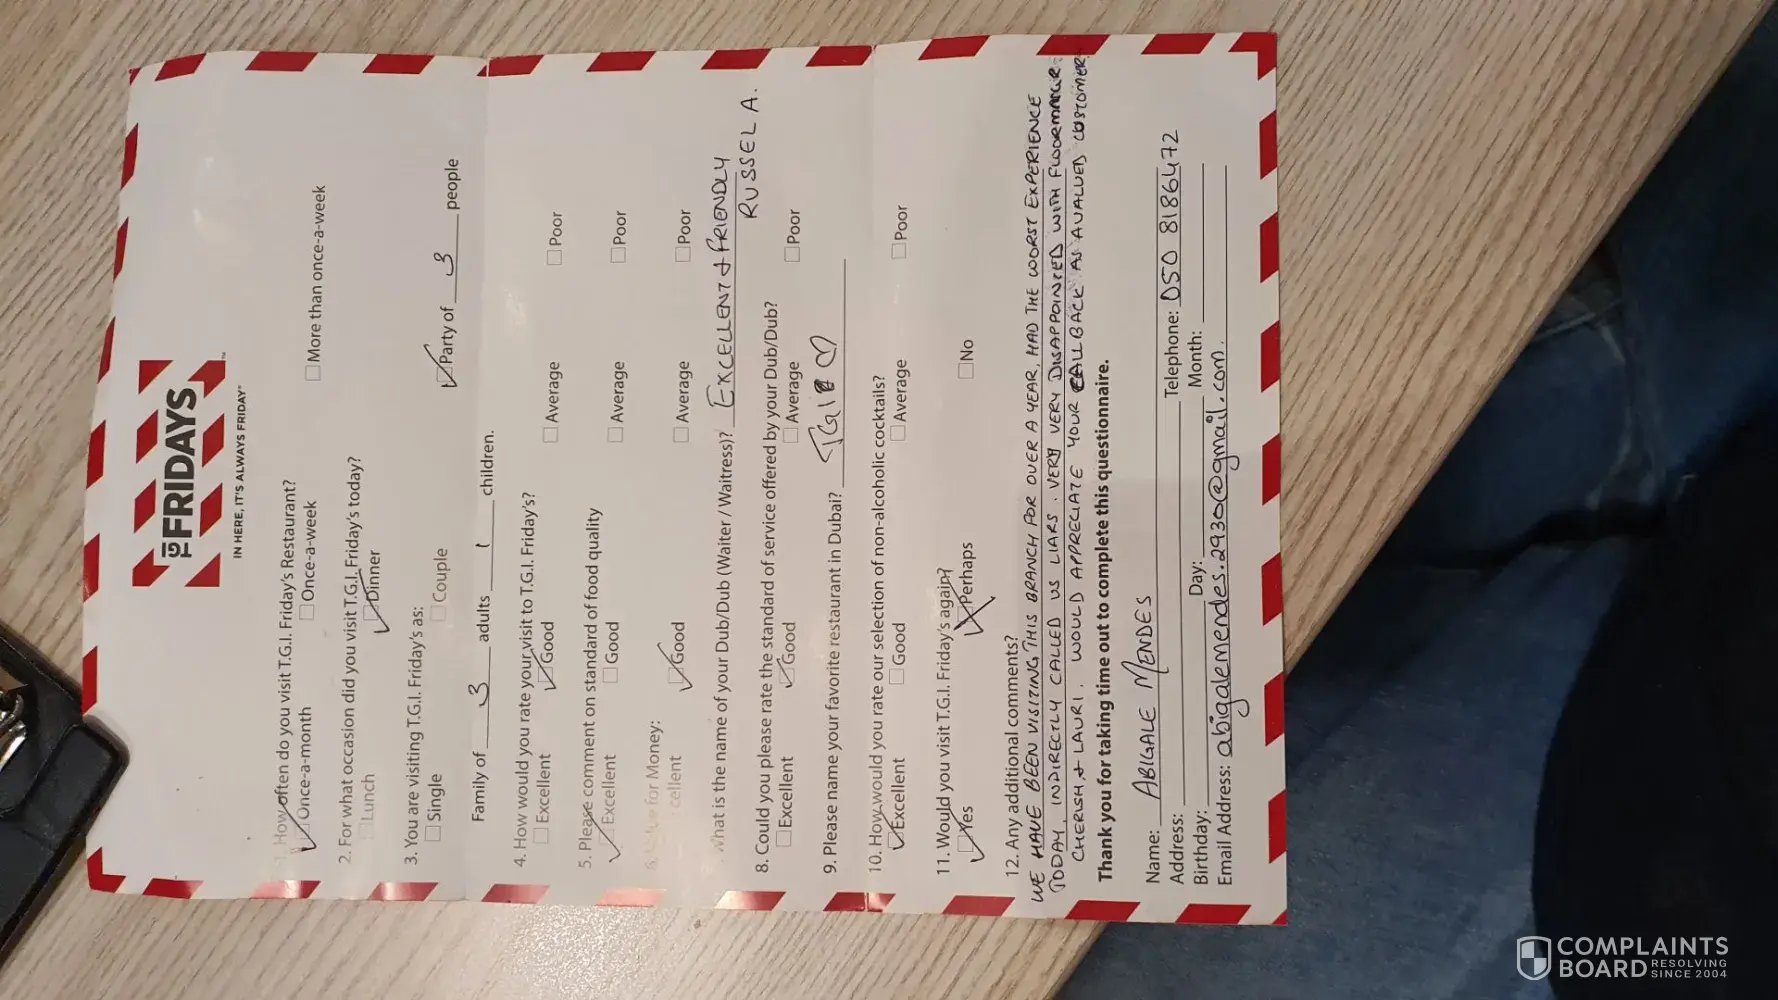 TGI FRIDAYS™
IN HERE, IT'S ALWAYS FRIDAY®
1. How often do you visit T.G.I. Friday's Restaurant?
Once-a-month Once-a-week More than once-a-week
2. For what occasion did you visit T.G.I. Friday's today?
Lunch Dinner
3. You are visiting T.G.I. Friday's as:
Single Couple Party of 3 people
Family of 3 adults 1 children.
4. How would you rate your visit to T.G.I. Friday's?
Excellent Good Average Poor
5. Please comment on standard of food quality
Excellent Good Average Poor
6. Value for Money:
Excellent Good Average Poor
What is the name of your Dub/Dub (Waiter / Waitress)? EXCELLENT & FRIENDLY
RUSSEL A.
8. Could you please rate the standard of service offered by your Dub/Dub?
Excellent Good Average Poor
9. Please name your favorite restaurant in Dubai? TGIF ♡
10. How would you rate our selection of non-alcoholic cocktails?
Excellent Good Average Poor
11. Would you visit T.G.I. Friday's again?
Yes Perhaps No
12. Any additional comments?
WE HAVE BEEN VISITING THIS BRANCH FOR OVER A YEAR, HAD THE WORST EXPERIENCE
TODAY, INDIRECTLY CALLED US LIARS. VERY VERY DISAPPOINTED WITH
CHERISH & LAURI. WOULD APPRECIATE YOUR CALLBACK AS A VALUED CUSTOMER
Thank you for taking time out to complete this questionnaire.
Name: ABIGALE MENDES
Address: Telephone: 050 8186472
Birthday: Day: Month:
Email Address: abigalemendes.2930@gmail.com.
COMPLAINTS
BOARD RESOLVING
SINCE 2004